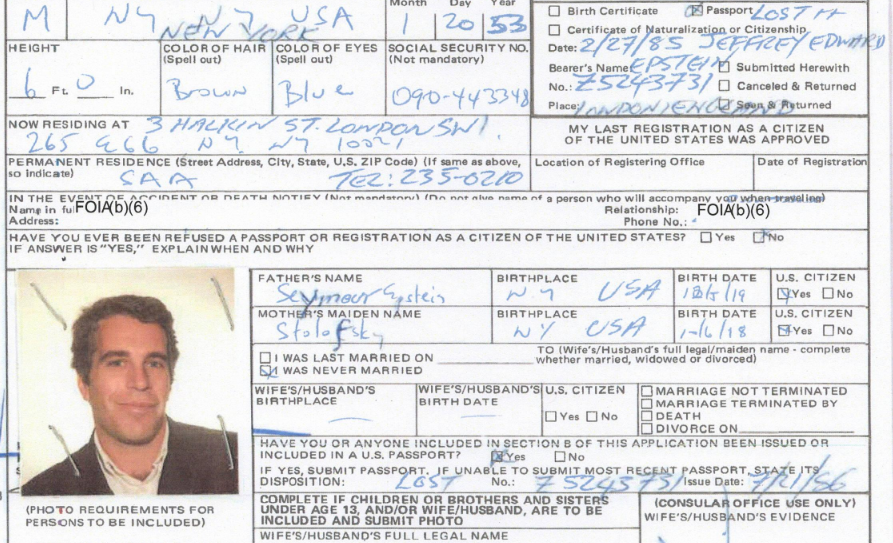 Month Day Year
M NY NY USA
NEW YORK
1 20 53
Birth Certificate Passport LOST
Certificate of Naturalization or Citizenship
Date: 2/27/85 JEFFREY EDWARD
Bearer's Name: EPSTEIN Submitted Herewith
No.: Z5243731 Canceled & Returned
Place: LONDON/ENGLAND Seen & Returned
HEIGHT
6 Ft. 0 In.
COLOR OF HAIR
(Spell out)
Brown
COLOR OF EYES
(Spell out)
Blue
SOCIAL SECURITY NO.
(Not mandatory)
090-443348
NOW RESIDING AT 3 HALKIN ST. LONDON SW1.
265 E66 NY. NY 10021
MY LAST REGISTRATION AS A CITIZEN
OF THE UNITED STATES WAS APPROVED
PERMANENT RESIDENCE (Street Address, City, State, U.S. ZIP Code) (If same as above,
so indicate)
SAA TEL: 235-0210
Location of Registering Office
Date of Registration
IN THE EVENT OF ACCIDENT OR DEATH NOTIFY (Not mandatory) (Do not give name of a person who will accompany you when traveling)
Name in full FOIA(b)(6) Relationship: FOIA(b)(6)
Address: Phone No.:
HAVE YOU EVER BEEN REFUSED A PASSPORT OR REGISTRATION AS A CITIZEN OF THE UNITED STATES? Yes No
IF ANSWER IS "YES," EXPLAIN WHEN AND WHY
FATHER'S NAME
Seymour Epstein
BIRTHPLACE
N.Y USA
BIRTH DATE
U.S. CITIZEN
Yes No
MOTHER'S MAIDEN NAME
Stolofsky
BIRTHPLACE
NY USA
BIRTH DATE
U.S. CITIZEN
Yes No
I WAS LAST MARRIED ON
I WAS NEVER MARRIED
TO (Wife's/Husband's full legal/maiden name - complete
whether married, widowed or divorced)
WIFE'S/HUSBAND'S
BIRTHPLACE
WIFE'S/HUSBAND'S
BIRTH DATE
U.S. CITIZEN
Yes No
MARRIAGE NOT TERMINATED
MARRIAGE TERMINATED BY
DEATH
DIVORCE ON
HAVE YOU OR ANYONE INCLUDED IN SECTION B OF THIS APPLICATION BEEN ISSUED OR
INCLUDED IN A U.S. PASSPORT? Yes No
IF YES, SUBMIT PASSPORT. IF UNABLE TO SUBMIT MOST RECENT PASSPORT, STATE ITS
DISPOSITION: LOST No.: Z5243731 Issue Date:
(PHOTO REQUIREMENTS FOR
PERSONS TO BE INCLUDED)
COMPLETE IF CHILDREN OR BROTHERS AND SISTERS
UNDER AGE 13, AND/OR WIFE/HUSBAND, ARE TO BE
INCLUDED AND SUBMIT PHOTO
WIFE'S/HUSBAND'S FULL LEGAL NAME
(CONSULAR OFFICE USE ONLY)
WIFE'S/HUSBAND'S EVIDENCE